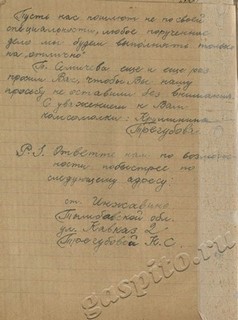 Пусть нас пошлют не по своей
специальности, любое порученное
дело мы будем выполнять только
на „отлично"
Т. Селичева еще и еще раз
просим Вас, чтобы Вы нашу
просьбу не оставили без внимания.
С уважением к Вам
комсомолки:
Трегубова
P.S. Ответьте нам по возмож-
ности, побыстрее по
следующему адресу
ст. Инжавино
Тамбовской обл.
ул. Кавказ 2
Трегубовой К.С.
gaspito.ru